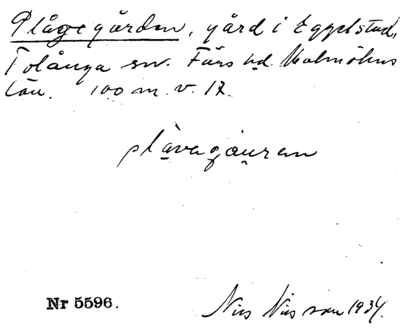 Plågegården, gård i Eggelstad,
Tolånga sn. Färs hd. Malmöhus
län. 100 m. v. 17.
plåvagauren
Nr 5596.
Nils Nilsson 1934.